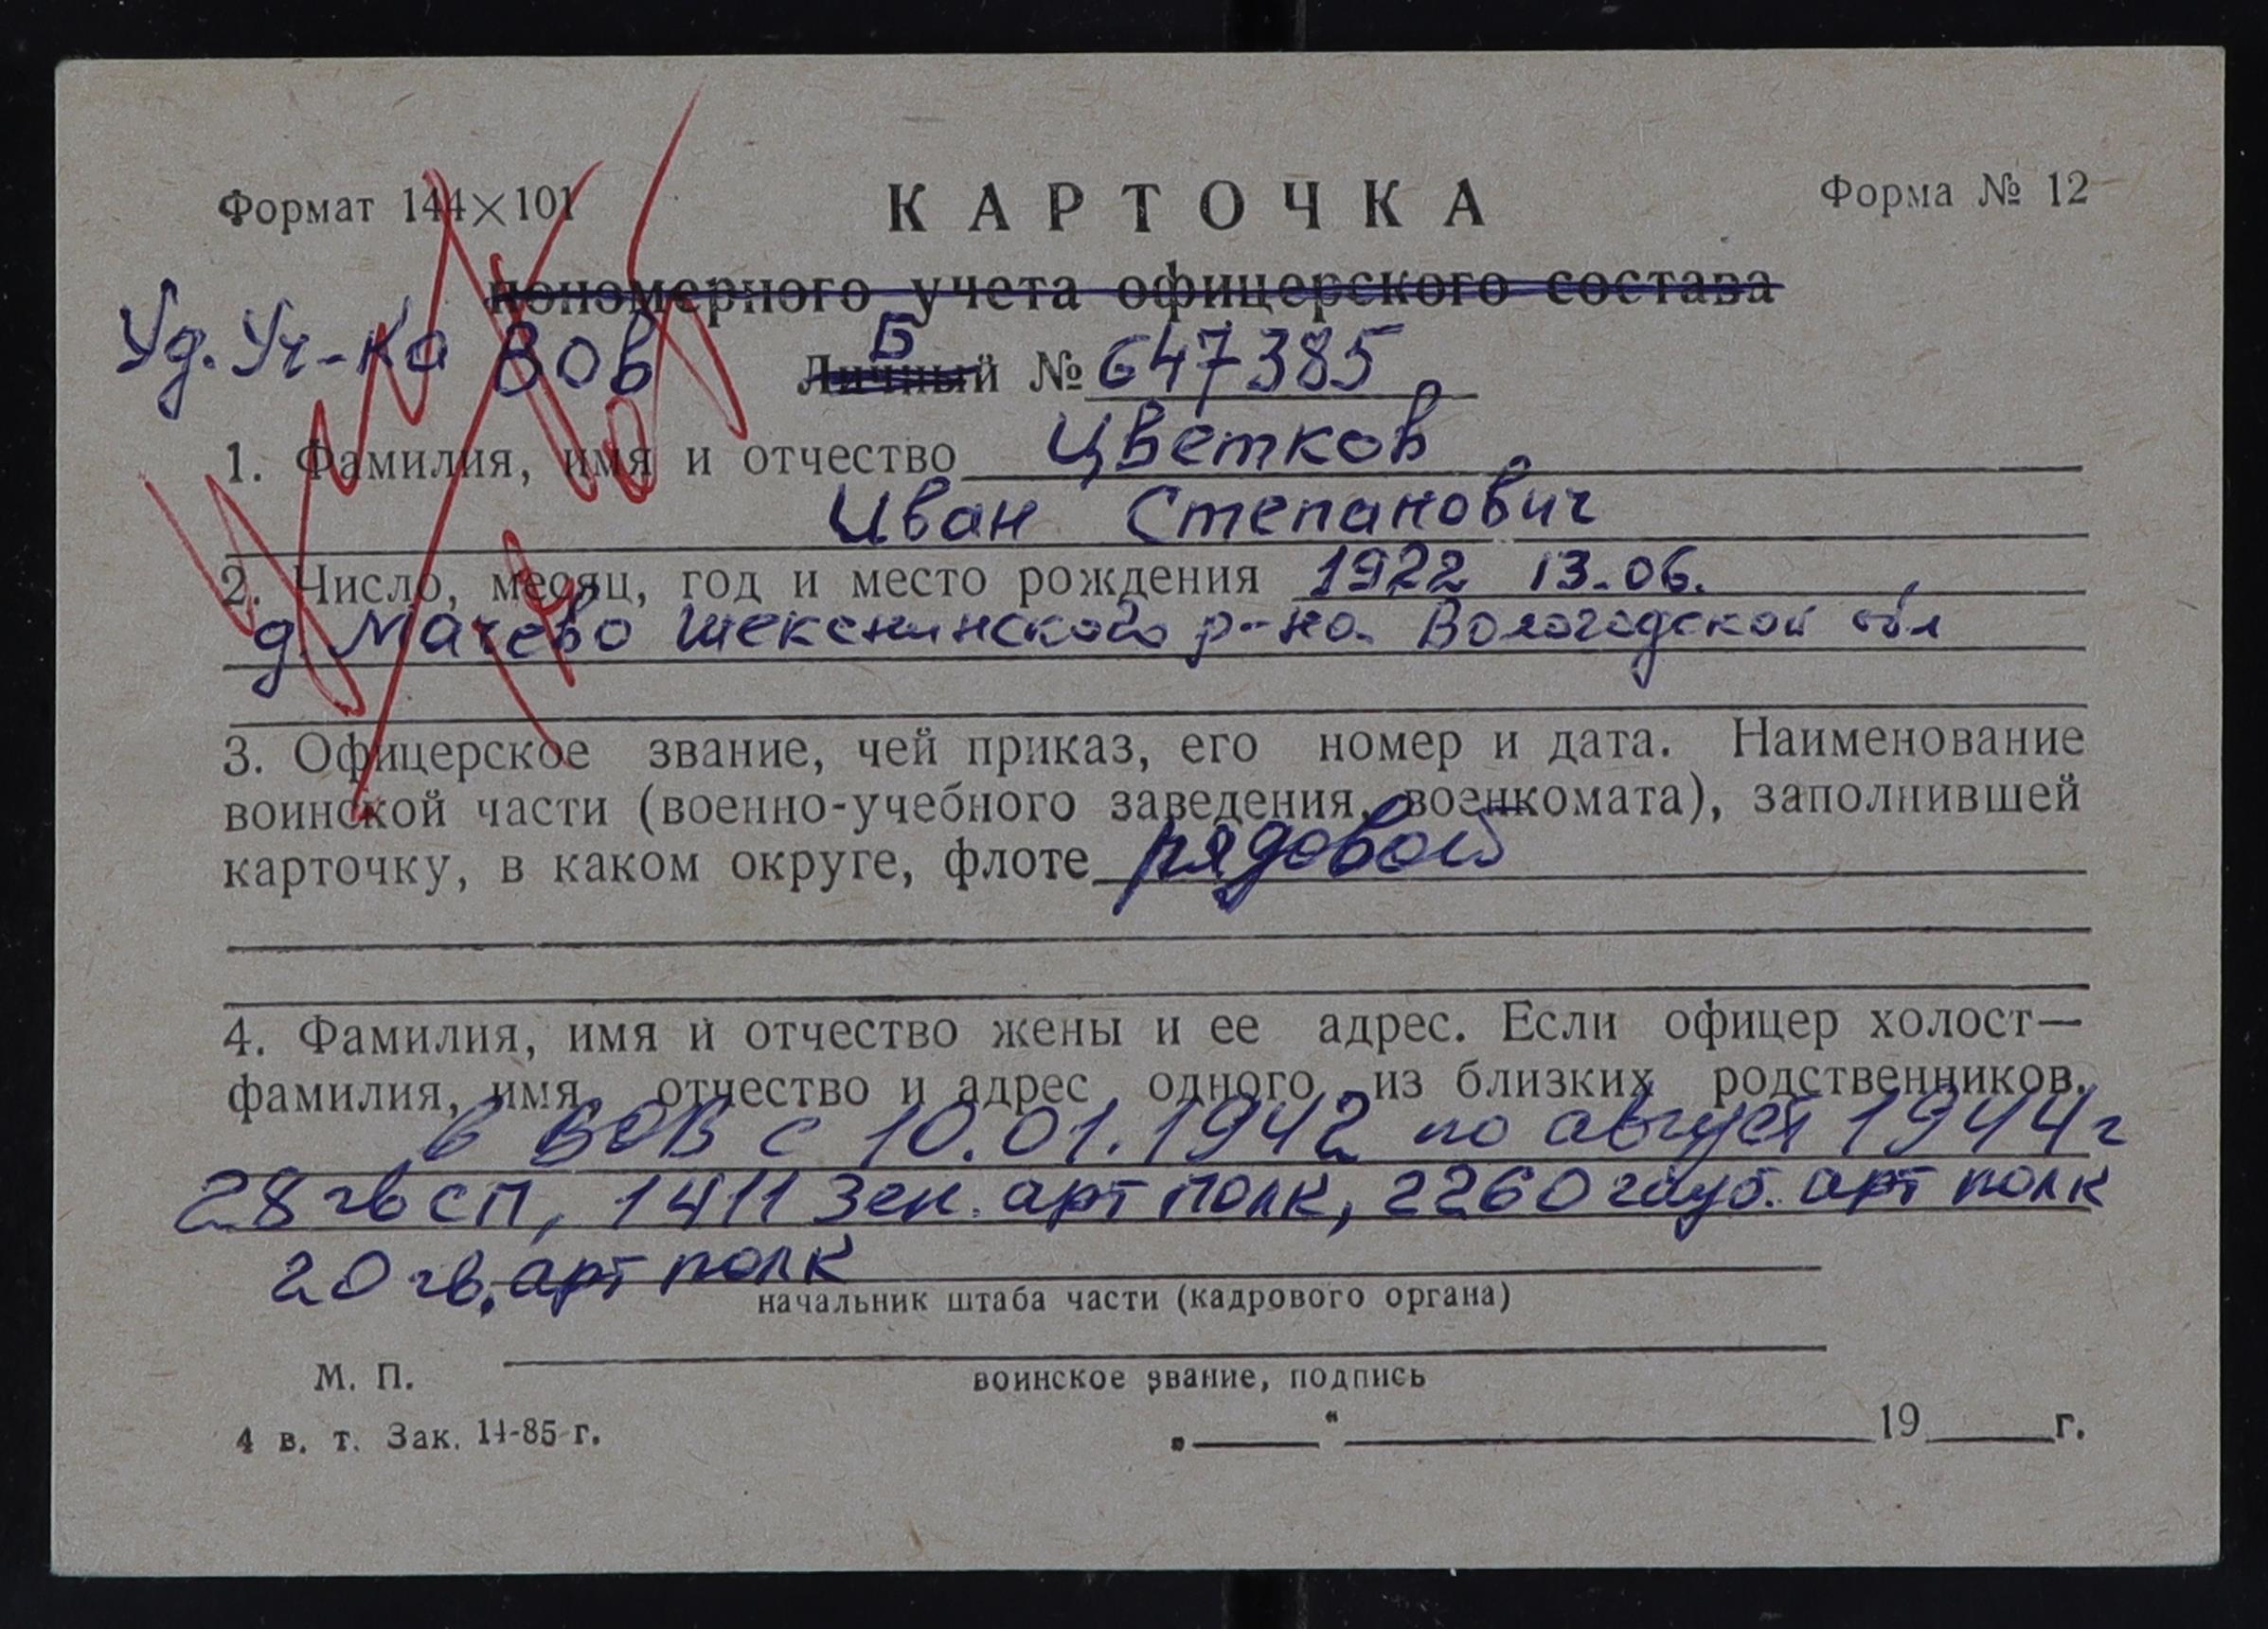 Формат 144×101
КАРТОЧКА
Форма № 12
пономерного учета офицерского состава
Уд. Уч-ка ВОВ
Б
Личный № 647385
1. Фамилия, имя и отчество Цветков
Иван Степанович
2. Число, месяц, год и место рождения 1922 13.06.
д. Мачево Шекснинского р-на. Вологодской обл
3. Офицерское звание, чей приказ, его номер и дата. Наименование
воинской части (военно-учебного заведения, военкомата), заполнившей
карточку, в каком округе, флоте рядовой
4. Фамилия, имя и отчество жены и ее адрес. Если офицер холост—
фамилия, имя, отчество и адрес одного из близких родственников.
в ВОВ с 10.01.1942 по август 1944 г
28 гв сп, 1411 зен. арт полк, 2260 гауб. арт полк
20 гв. арт полк
начальник штаба части (кадрового органа)
М. П.
воинское звание, подпись
4 в. т. Зак. 14-85 г.
„ “ 19 г.